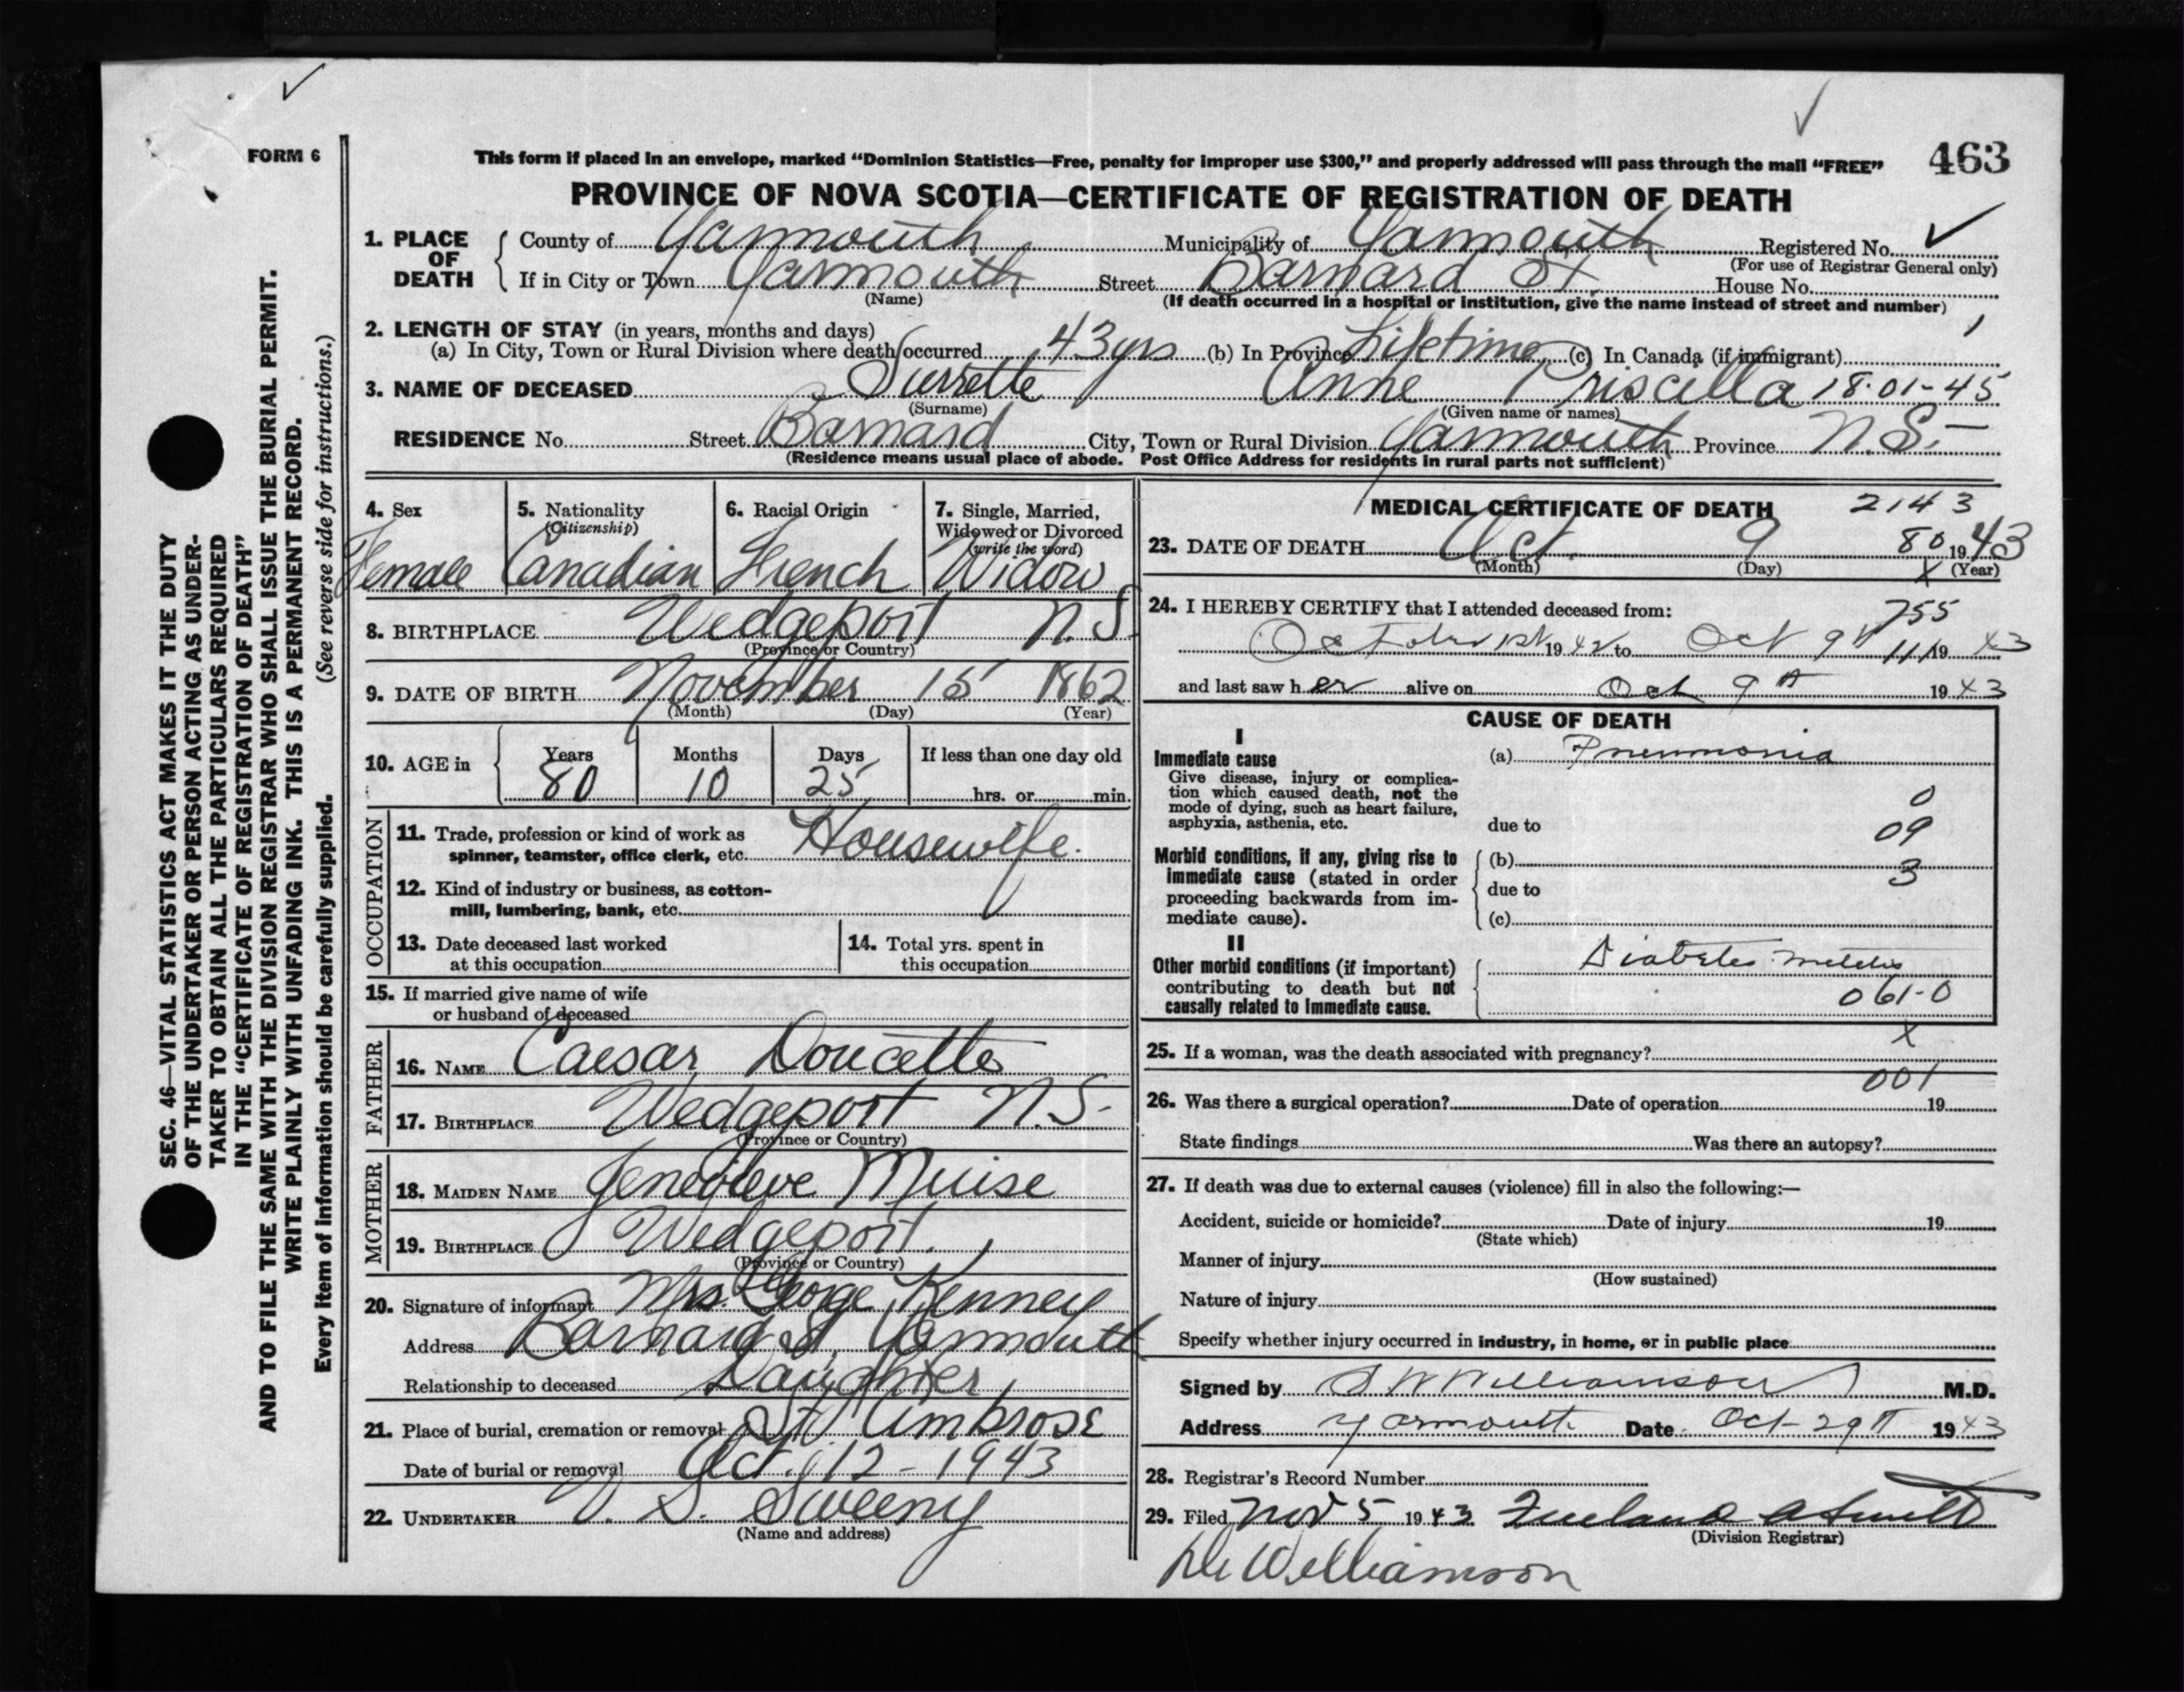 FORM 6
This form if placed in an envelope, marked “Dominion Statistics—Free, penalty for improper use $300,” and properly addressed will pass through the mail “FREE”
463
PROVINCE OF NOVA SCOTIA—CERTIFICATE OF REGISTRATION OF DEATH
1. PLACE OF DEATH
County of Yarmouth Municipality of Yarmouth Registered No.
(For use of Registrar General only)
If in City or Town Yarmouth Street Barnard St. House No.
(Name)
(If death occurred in a hospital or institution, give the name instead of street and number)
2. LENGTH OF STAY (in years, months and days)
(a) In City, Town or Rural Division where death occurred 43 yrs (b) In Province Lifetime (c) In Canada (if immigrant)
3. NAME OF DECEASED Surrette Anne Priscilla 18-01-45
(Surname) (Given name or names)
RESIDENCE No. Street Barnard City, Town or Rural Division Yarmouth Province N.S.
(Residence means usual place of abode. Post Office Address for residents in rural parts not sufficient)
4. Sex
Female
5. Nationality
(Citizenship)
Canadian
6. Racial Origin
French
7. Single, Married,
Widowed or Divorced
(write the word)
Widow
8. BIRTHPLACE Wedgeport N.S.
(Province or Country)
9. DATE OF BIRTH November 15 1862
(Month) (Day) (Year)
10. AGE in
Years Months Days If less than one day old
80 10 25 hrs. or min.
OCCUPATION
11. Trade, profession or kind of work as
spinner, teamster, office clerk, etc. Housewife.
12. Kind of industry or business, as cotton-
mill, lumbering, bank, etc.
13. Date deceased last worked
at this occupation
14. Total yrs. spent in
this occupation
15. If married give name of wife
or husband of deceased
FATHER
16. NAME Caesar Doucette
17. BIRTHPLACE Wedgeport N.S.
(Province or Country)
MOTHER
18. MAIDEN NAME Genevieve Muise
19. BIRTHPLACE Wedgeport.
(Province or Country)
20. Signature of informant Mrs. George Kenney
Address Barnard St. Yarmouth
Relationship to deceased Daughter
21. Place of burial, cremation or removal St Ambrose
Date of burial or removal Oct. 12 - 1943
22. UNDERTAKER V. S. Sweeny
(Name and address)
MEDICAL CERTIFICATE OF DEATH 2143
23. DATE OF DEATH Oct. 9 80 1943
(Month) (Day) X (Year)
24. I HEREBY CERTIFY that I attended deceased from:
755
October 1st 1942 to Oct 9th 111 1943
and last saw her alive on Oct 9th 1943
CAUSE OF DEATH
I
Immediate cause
Give disease, injury or complica-
tion which caused death, not the
mode of dying, such as heart failure,
asphyxia, asthenia, etc.
(a) Pneumonia
0
due to 09
Morbid conditions, if any, giving rise to
immediate cause (stated in order
proceeding backwards from im-
mediate cause).
(b) 3
due to
(c)
II
Other morbid conditions (if important)
contributing to death but not
causally related to immediate cause.
Diabetes mellitus
061-0
X
25. If a woman, was the death associated with pregnancy?
001
26. Was there a surgical operation? Date of operation 19
State findings Was there an autopsy?
27. If death was due to external causes (violence) fill in also the following:—
Accident, suicide or homicide? Date of injury 19
(State which)
Manner of injury
(How sustained)
Nature of injury
Specify whether injury occurred in industry, in home, or in public place
Signed by S W Williamson M.D.
Address Yarmouth Date Oct 29th 1943
28. Registrar's Record Number
29. Filed Nov 5 1943
(Division Registrar)
Dr Williamson
SEC. 46—VITAL STATISTICS ACT MAKES IT THE DUTY
OF THE UNDERTAKER OR PERSON ACTING AS UNDER-
TAKER TO OBTAIN ALL THE PARTICULARS REQUIRED
IN THE “CERTIFICATE OF REGISTRATION OF DEATH”
AND TO FILE THE SAME WITH THE DIVISION REGISTRAR WHO SHALL ISSUE THE BURIAL PERMIT.
WRITE PLAINLY WITH UNFADING INK. THIS IS A PERMANENT RECORD.
Every item of information should be carefully supplied. (See reverse side for instructions.)